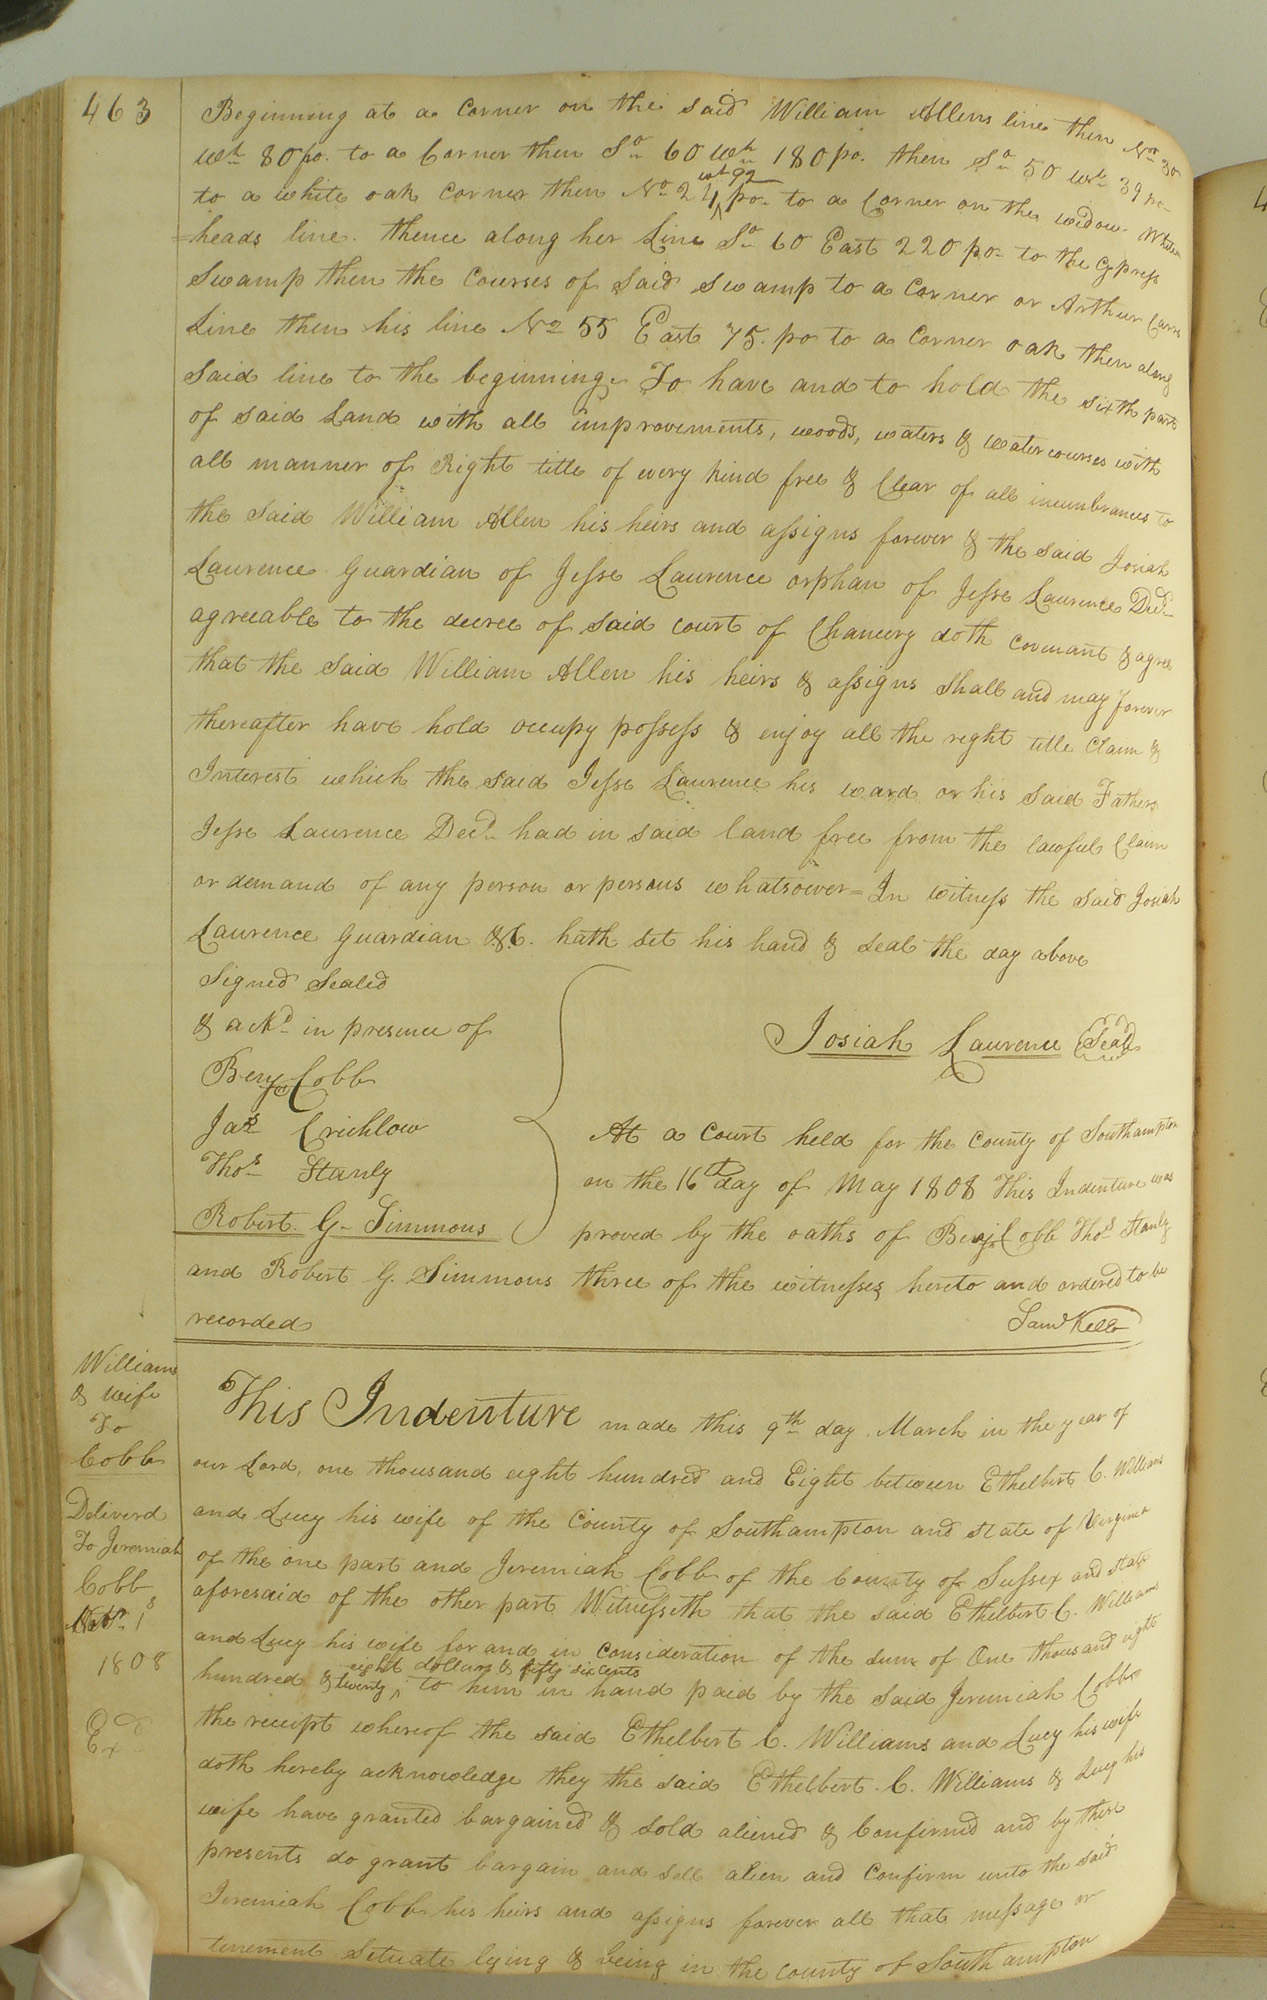 463
Beginning at a Corner on the said William Allens line then No. 30
wt. 80 po. to a Corner then So. 60 wt. 180 po. then So. 50 wt. 39 po.
to a white oak corner then No. 24 wt 92 po. to a Corner on the widow White
=heads line. thence along her Line So. 60 East 220 po. to the Cypress
Swamp then the Courses of said swamp to a Corner or Arthur Carrs
Line then his line No. 55 East 75. po to a Corner oak then along
said line to the beginning. To have and to hold the sixth part
of said Land with all improvements, woods, waters & watercourses with
all manner of Right title of every kind free & Clear of all incumbrances to
the said William Allen his heirs and assigns forever & the said Josiah
Laurence Guardian of Jesse Laurence orphan of Jesse Laurence Decd.
agreeable to the decree of said court of Chancery doth covenant & agree
that the said William Allen his heirs & assigns shall and may forever
thereafter have hold occupy possess & enjoy all the right title Claim &
Interest which the said Jesse Laurence his ward or his said Fathers
Jesse Laurence Decd. had in said land free from the lawful Claim
or demand of any person or persons whatsoever= In witness the said Josiah
Laurence Guardian &C. hath set his hand & seal the day above
Signed Sealed
& ackd. in presence of
Benj. Cobb
Jas. Crichlow
Thos. Stanly
Robert. G. Simmons
Josiah Laurence (Seal)
At a Court held for the County of Southampton
on the 16th day of May 1808 This Indenture was
proved by the oaths of Benj. Cobb Thos. Stanly
and Robert G. Simmons three of the witnesses hereto and ordered to be
recorded
Saml Kello
Williams
& wife
To
Cobb
Deliverd
To Jeremiah
Cobb
1s
1808
Ex
This Indenture made this 9th day March in the year of
our Lord, one thousand eight hundred and Eight between Ethelbert C. Williams
and Lucy his wife of the County of Southampton and state of Virginia
of the one part and Jeremiah Cobb of the County of Sussex and state
aforesaid of the other part Witnesseth that the said Ethelbert C. Williams
and Lucy his wife for and in Consideration of the sum of One thousand eight
hundred & twenty eight dollars & fifty six cents to him in hand paid by the said Jeremiah Cobb
the receipt whereof the said Ethelbert C. Williams and Lucy his wife
doth hereby acknowledge they the said Ethelbert. C. Williams & Lucy his
wife have granted bargained & sold aliened & Confirmed and by these
presents do grant bargain and sell alien and Confirm unto the said
Jeremiah Cobb his heirs and assigns forever all that message or
tenement Situate lying & being in the County of Southampton